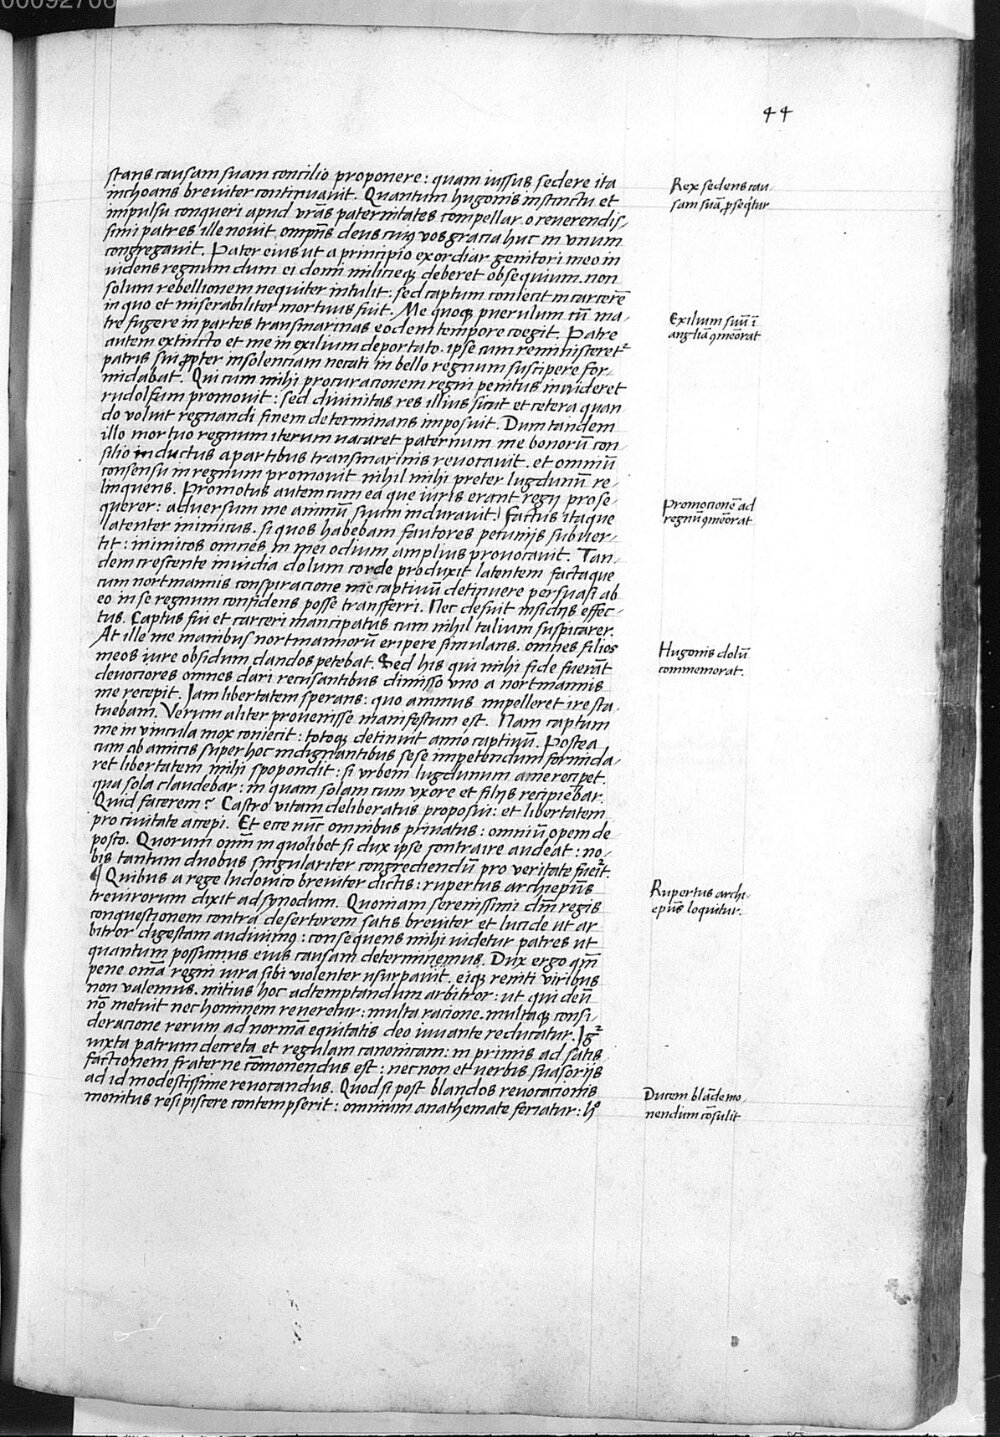 44
stans causam suam concilio proponere: quam iussus sedere ita
inchoans breviter continuavit. Quantum hugonis instinctu et
impulsu conqueri apud vrãs paternitates compellar o reverendis-
simi patres ille novit. omp̃ns deus cuiꝰ vos gracia huc in vnum
congregavit. Pater eius ut a principio exordiar genitori meo in
videns regnum dum ei domi militieqꝫ deberet obsequium. non
solum rebellionem nequiter intulit: sed captum coniecit in carcerẽ
in quo et miserabiliter mortuus fuit. Me quoqꝫ puerulum cũ ma-
tre fugere in partes transmarinas eodem tempore coegit. Patre
autem extincto et me in exilium deportato. ipse cum reminisceret᷑
patris sui ꝓpter insolenciam necati in bello regnum suscipere for-
midabat. Qui cum mihi procuracionem regni penitus invideret
rudolfum promovit: sed divinitas res illius sicut et cetera quan
do voluit regnandi finem determinans imposuit. Dum tandem
illo mortuo regnum iterum vacaret paternum me bonorũ con
silio inductus a partibus transmarinis revocavit. et omniũ
consensu in regnum promovit nihil mihi preter lugdunũ re-
linquens. Promotus autem cum ea que iuris erant regij prose-
querer: adversum me animũ suum induravit. Factus itaque
latenter inimicus. si quos habebam fautores pecunijs subver-
tit: inimicos omnes in mei odium amplius provocavit. Tan-
dem crescente invidia dolum corde produxit latentem factaque
cum nortmannis conspiracione me captivũ detinuere persuasi ab
eo in se regnum confidens posse transferri. Nec defuit insidijs effec-
tus. Captus fui et carceri mancipatus cum nihil talium suspicarer.
At ille me manibus nortmannorũ eripere simulans. omnes filios
meos iure obsidum dandos petebat. Sed his qui mihi fide fuerãt
devociores omnes dari recusantibus dimisso vno a nortmannis
me recepit. Iam libertatem sperans: quo animus impelleret ire sta-
tuebam. Verum aliter provenisse manifestum est. Nam captum
me in vincula mox coniecit: totoqꝫ detinuit anno captivũ. Postea
cum ab amicis super hoc indignantibus sese impetendum formida-
ret libertatem mihi spopondit: si vrbem lugdunum a me recipet.
qua sola claudebar: in quam solam cum vxore et filijs recipiebar.
Quid facerem? Castro vitam deliberatus proposui: et libertatem
pro civitate accepi. Et ecce nũc omnibus privatus: omniũ opem de-
posco. Quorum om̃m in quolibet si dux ipse contraire audeat: no-
bis tantum duobus singulariter congrediendũ pro veritate fuerit.
¶ Quibus a rege ludovico breviter dictis: rupertus archiep̃us
trevirorum dixit ad synodum. Quoniam serenissimi dñi regis
conquestionem contra desertorem satis breviter et lucide ut ar
bitror digestam audivimꝰ: consequens mihi videtur patres ut
quantum possumus eius causam determinemus. Dux ergo qm̃
pene om̃a regni iura sibi violenter usurpavit. eiqꝫ reniti viribus
non valemus. mitius hoc adtemptandum arbitror: ut qui deũ
nõ metuit nec hominem reveretur: multa racione. multaqꝫ consi-
deracione rerum ad normã equitatis deo iuvante reducatur. Ig᷑
iuxta patrum decreta et regulam canonicam: in primis ad satis-
factionem fraterne cõmonendus est: nec non et verbis suasorijs
ad id modestissime revocandus. Quod si post blandos revocacionis
monitus resipiscere contempserit: omnium anathemate feriatur: hͦ
Rex sedens cau-
sam suã ꝓseq̃tur
Exilium suũ ĩ
angliã ꝯmẽorat
Promocionẽ ad
regnũ ꝯmẽorat
Hugonis dolũ
commemorat.
Rupertus archi-
ep̃us loquitur.
Ducem blãde mo-
nendum cõsulit